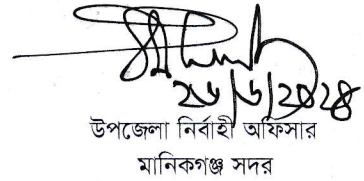 ২৬/৬/২০২৪
উপজেলা নির্বাহী অফিসার
মানিকগঞ্জ সদর